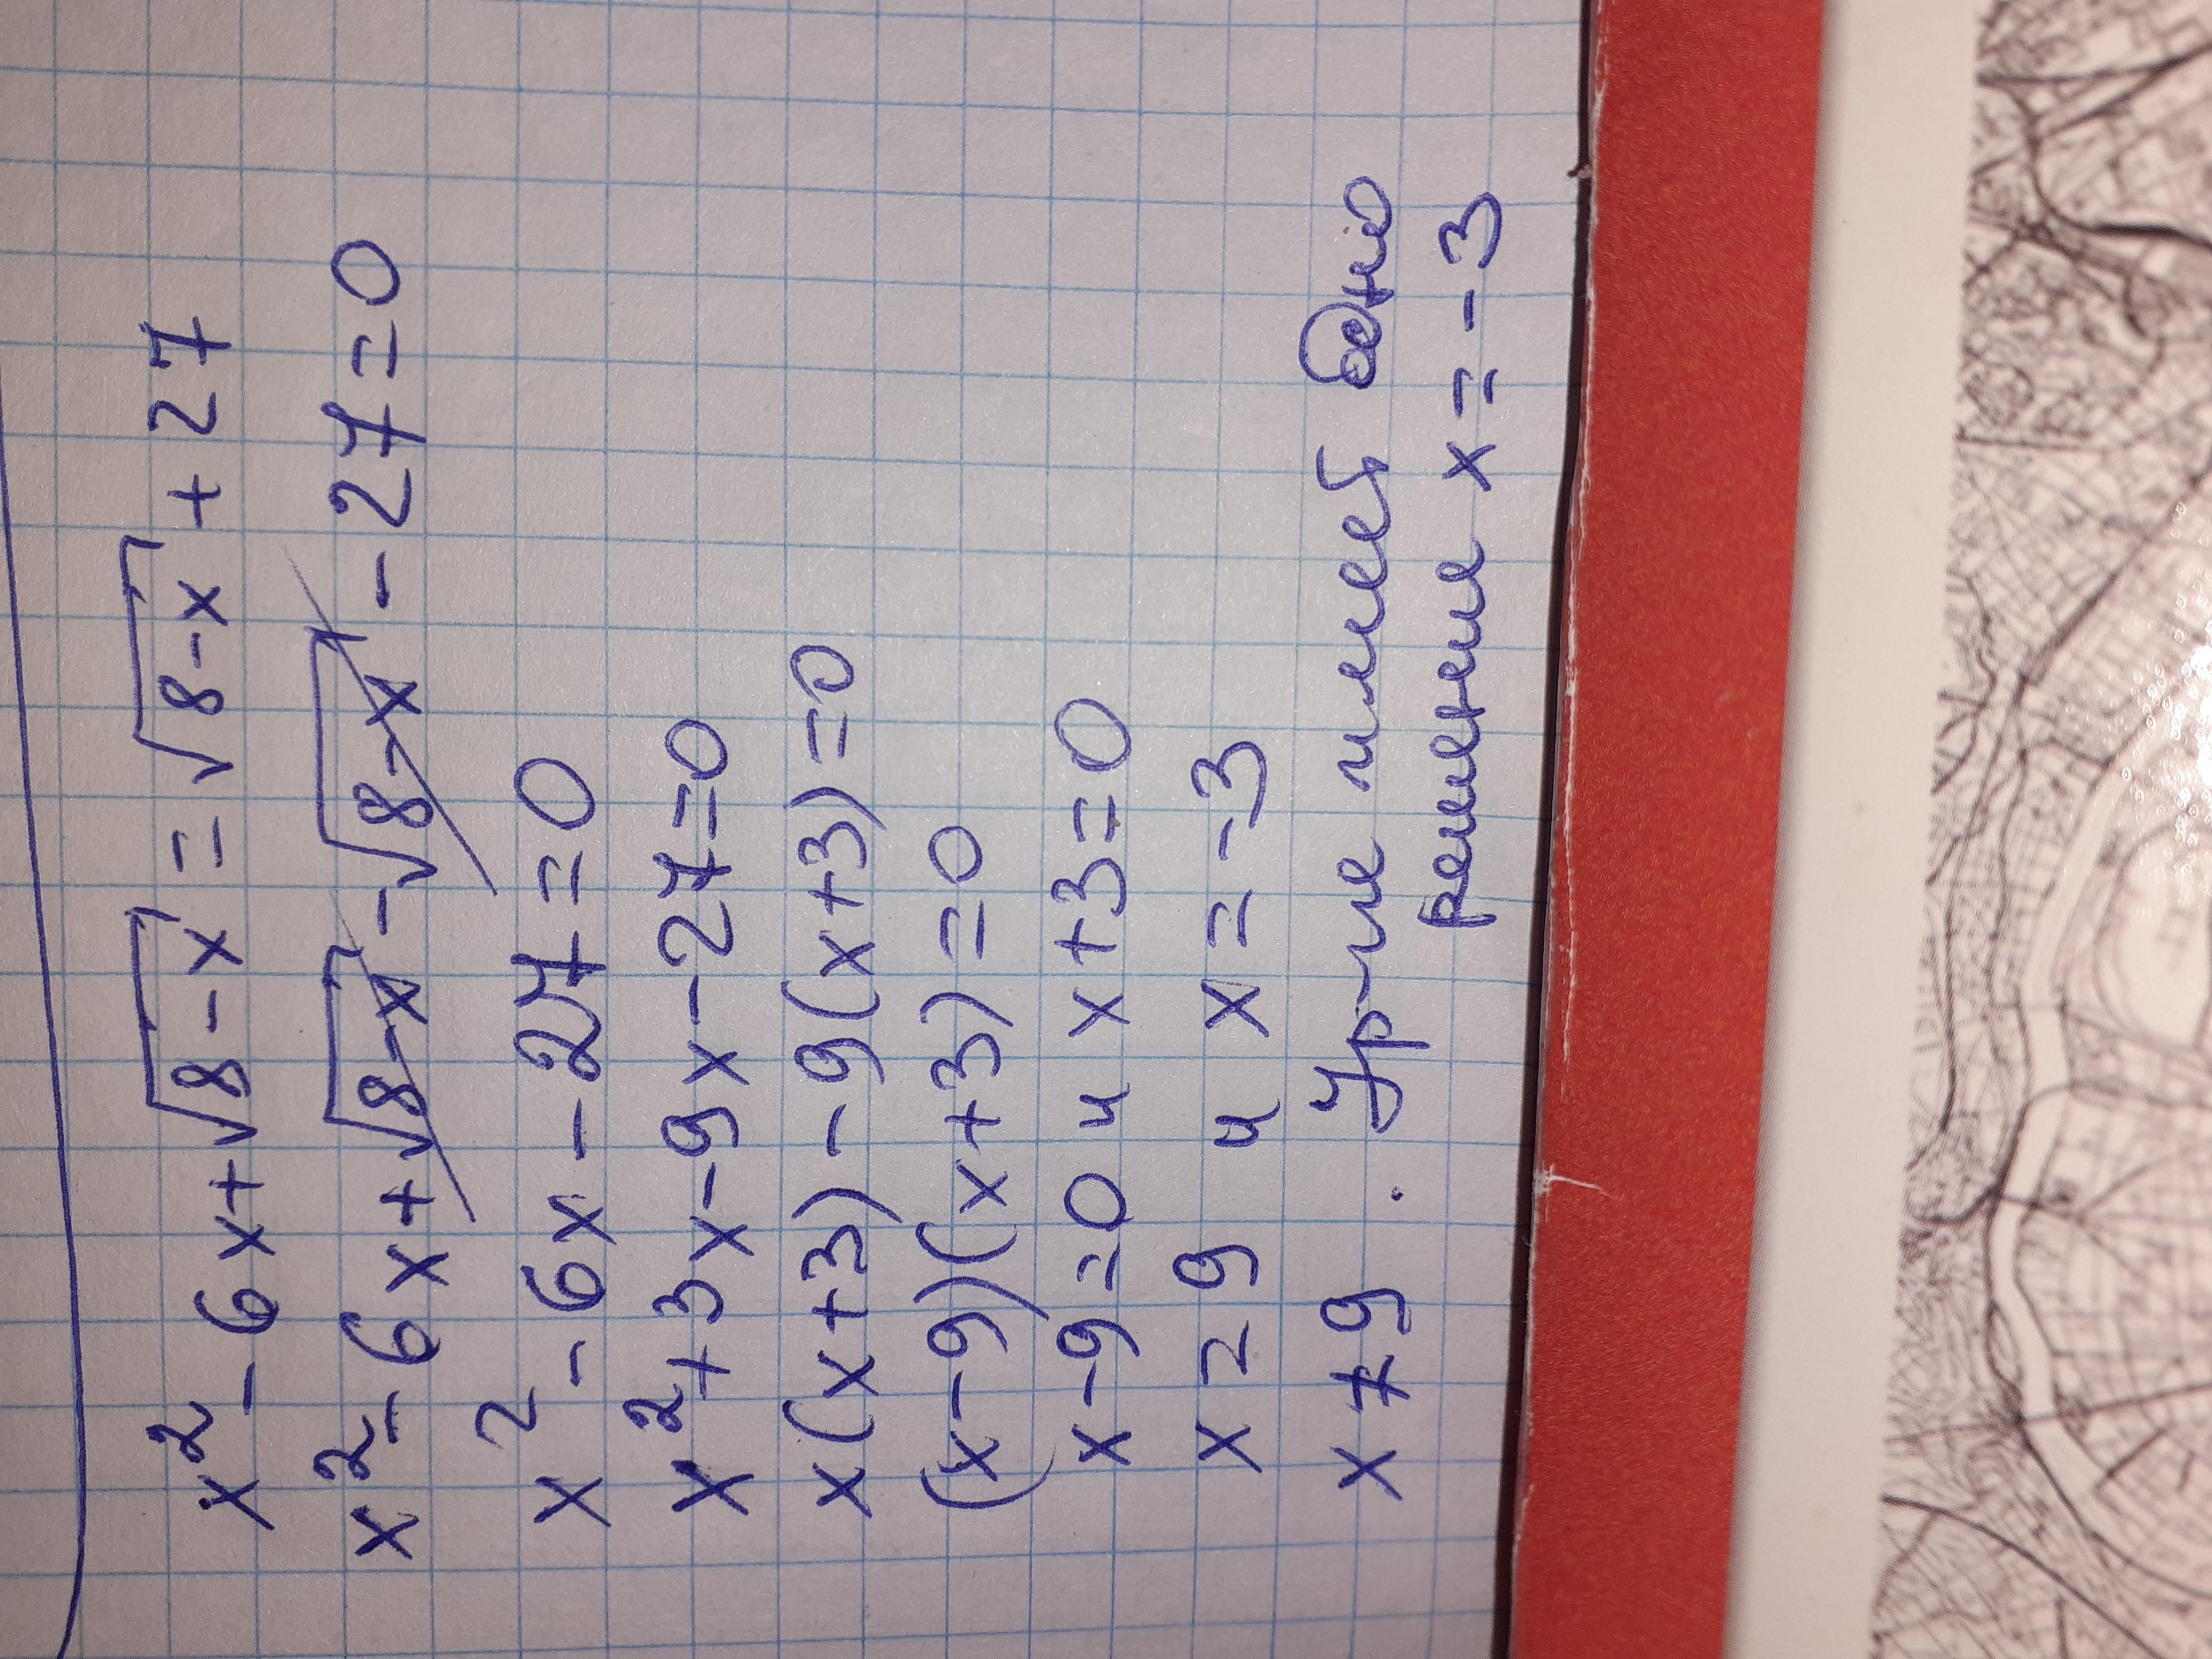 x² - 6x + √8-x = √8-x + 27
x² - 6x + √8-x - √8-x - 27 = 0
x² - 6x - 27 = 0
x² + 3x - 9x - 27 = 0
x(x+3) - 9(x+3) = 0
(x-9)(x+3) = 0
x-9=0 и x+3=0
x=9 и x=-3
x≠9. Ур-ие имеет одно
решение x=-3